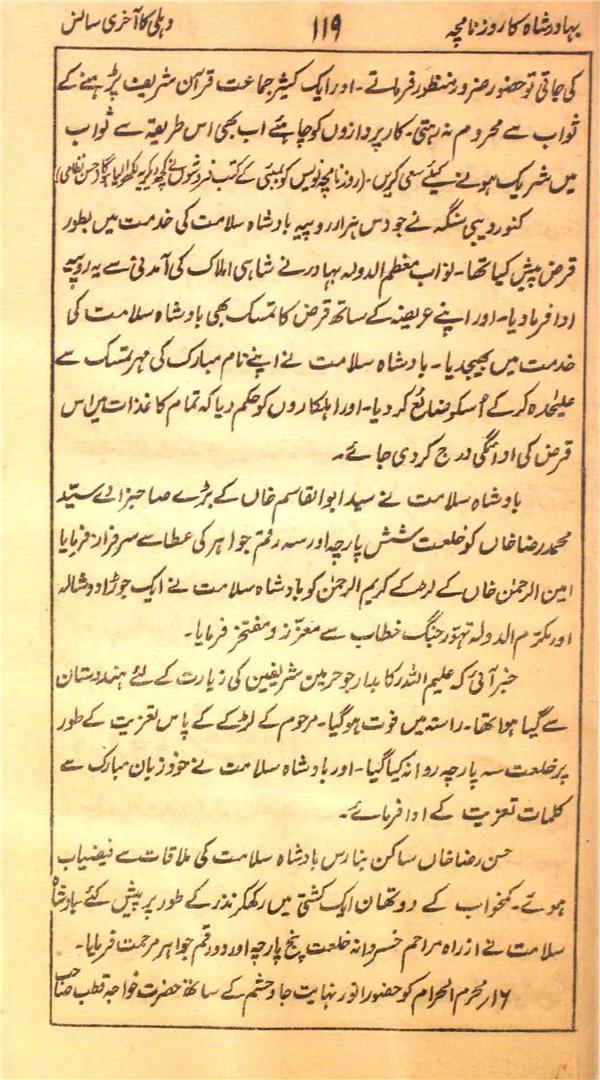 بہادر شاہ کا روزنامچہ ۱۱۹ دہلی کا آخری سانس
کی جاتی تو حضور ضرور منظور فرماتے۔ اور ایک کثیر جماعت قرآن شریف پڑہنے کے
ثواب سے محروم نہ رہتی۔ کارپردازوں کو چاہئے اب بھی اس طریقہ سے ثواب
میں شریک ہونے کیلئے سعی کریں۔ (روزنامچہ نویس کو بمبئی کے کتب فروشوں نے کچھ دیکر یہ لکھوا لیا ہوگا۔ حسن نظامی)
کنور دیبی سنگہ نے جو دس ہزار روپیہ بادشاہ سلامت کی خدمت میں بطور
قرض پیش کیا تھا۔ نواب معظم الدولہ بہادر نے شاہی املاک کی آمدنی سے یہ روپیہ
ادا فرمادیا۔ اور اپنے عریضہ کے ساتھ قرض کا تمسک بھی بادشاہ سلامت کی
خدمت میں بھیجدیا۔ بادشاہ سلامت نے اپنے نام مبارک کی مہر تمسک سے
علیٰحدہ کرکے اُسکو ضائع کردیا۔ اور اہلکاروں کو حکم دیا کہ تمام کاغذات میں اس
قرض کی ادائگی درج کردی جائے۔
بادشاہ سلامت نے سید ابو القاسم خاں کے بڑے صاحبزادے سیّد
محمد رضا خاں کو خلعت شش پارچہ اور سہ رقم جواہر کی عطا سے سرفراز فرمایا
امین الرحمٰن خاں کے لڑکے کریم الرحمٰن کو بادشاہ سلامت نے ایک جوڑا دوشالہ
اور مکرّم الدولہ تہوّر جنگ خطاب سے معزّز و مفتخر فرمایا۔
خبر آئی کہ علیم اللہ رکابدار جو حرمین شریفین کی زیارت کے لئے ہندوستان
سے گیا ہوا تھا۔ راستہ میں فوت ہوگیا۔ مرحوم کے لڑکے کے پاس تعزیت کے طور
پر خلعت سہ پارچہ روانہ کیا گیا۔ اور بادشاہ سلامت نے خود زبان مبارک سے
کلمات تعزیت کے ادا فرمائے۔
حسن رضا خاں ساکن بنارس بادشاہ سلامت کی ملاقات سے فیضیاب
ہوئے۔ کمخواب کے دو تھان ایک کشتی میں رکھکر نذر کے طور پر پیش کئے۔ بادشاہ
سلامت نے از راہ مراحم خسروانہ خلعت پنج پارچہ اور دو رقم جواہر مرحمت فرمایا۔
۱۶؍ محرم الحرام کو حضور انور نہایت جاہ و حشم کے ساتھ حضرت خواجہ قطب صاحب